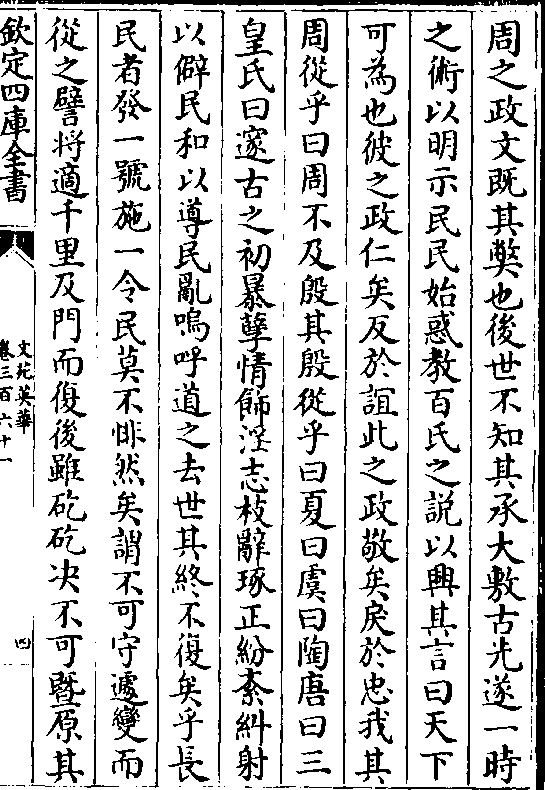 周之政文既其獘也後世不知其承大敷古先遂一時
之術以明示民民始惑教百氏之說以興其言曰天下
可為也彼之政仁矣反於誼此之政敬矣戾於忠我其
周從乎曰周不及殷其殷從乎曰夏曰虞曰陶唐曰三
皇氏曰邃古之初暴孽情飾淫志枝辭琢正紛紊糾射
以僻民和以導民亂嗚呼道之去世其終不復矣乎長
民者發一號施一令民莫不悱然矣謂不可守遽變而
從之譬將適千里及門而復後雖矻矻决不可暨原其
欽定四庫全書
文苑英華
卷三百六十一
四